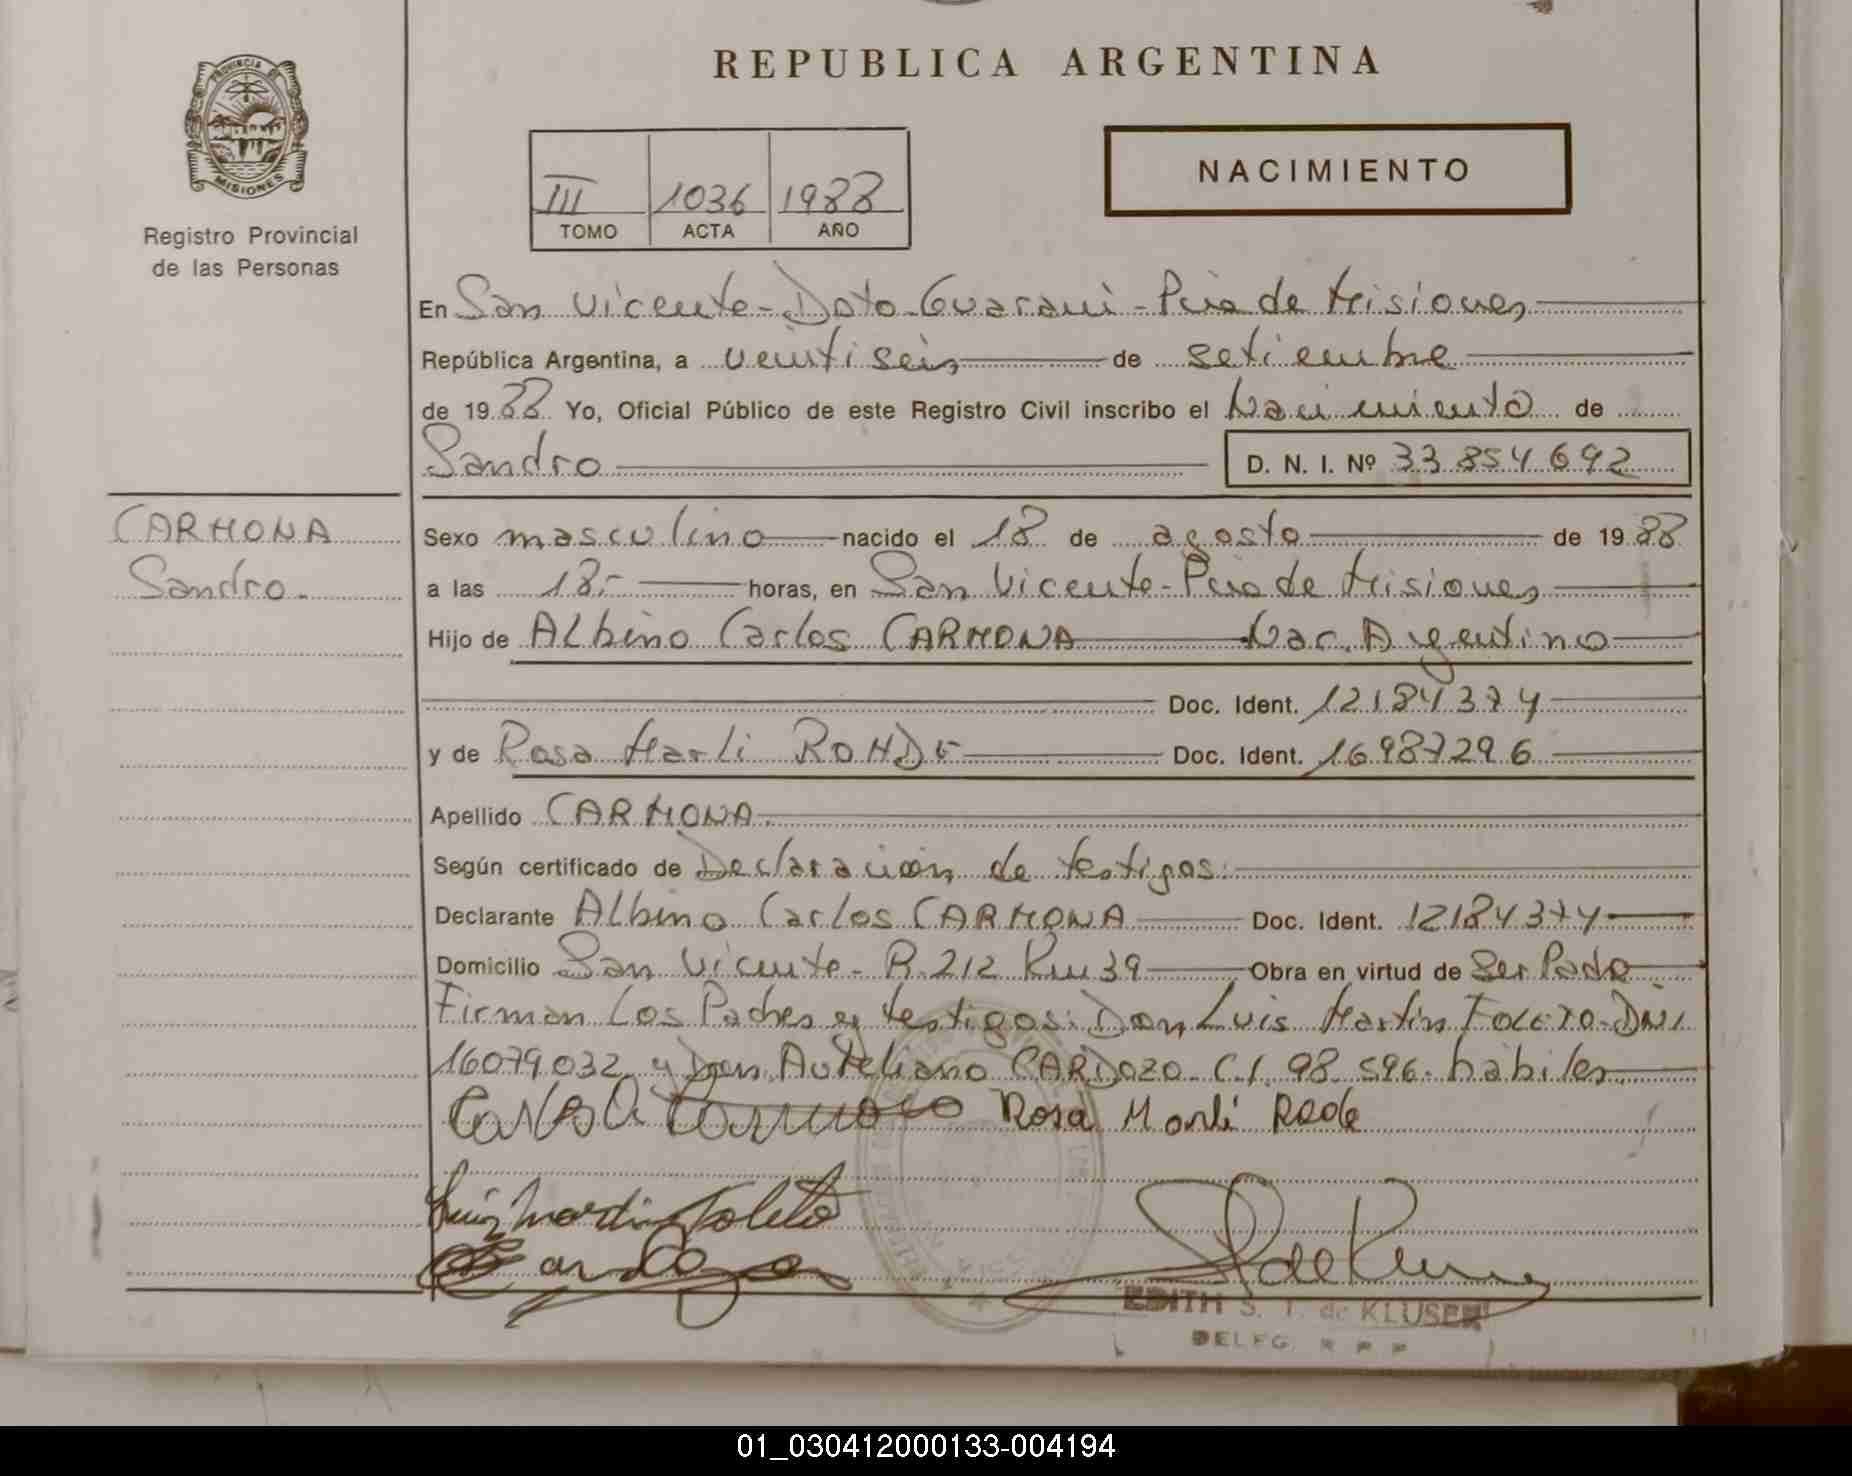 REPUBLICA ARGENTINA
PROVINCIA DE
MISIONES
Registro Provincial
de las Personas
NACIMIENTO
III 1036 1988
TOMO ACTA AÑO
En San Vicente - Dpto. Guarani - Pcia de Misiones
República Argentina, a veintiseis de setiembre
de 1988 Yo, Oficial Público de este Registro Civil inscribo el Nacimiento de
Sandro D. N. I. Nº 33 854 692
CARMONA
Sandro.
Sexo masculino nacido el 18 de agosto de 1988
a las 18.- horas, en San Vicente - Pcia de Misiones
Hijo de Albino Carlos CARMONA Nac. Argentino
Doc. Ident. 12184374
y de Rosa Marli ROHDE Doc. Ident. 16987296
Apellido CARMONA.
Según certificado de Declaración de testigos.
Declarante Albino Carlos CARMONA Doc. Ident. 12184374
Domicilio San Vicente - R. 212 Km 39 Obra en virtud de Ser Padre
Firman Los Padres y testigos: Don Luis Martin TOLETO - DNI
16079032 y Don Aureliano CARDOZO C.I. 98.596. hábiles.
Rosa Marli Rode
Luiz Martin Toleto
EDITH S. T. de KLUSER
DELEG. R P P
01_030412000133-004194